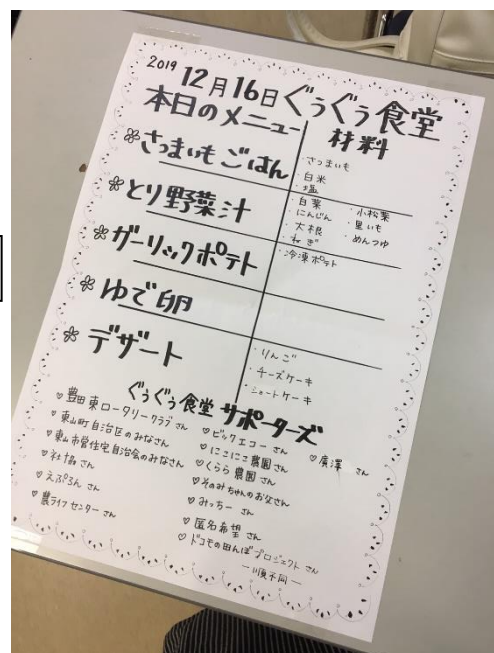 2019 12月16日ぐぅぐぅ食堂
本日のメニュー
材料
❀さつまいもごはん
・さつまいも
・白米
・塩
❀とり野菜汁
・白菜
・にんじん
・大根
・ねぎ
・小松菜
・里いも
・めんつゆ
❀ガーリックポテト
・冷凍ポテト
❀ゆで卵
❀デザート
・りんご
・チーズケーキ
・ショートケーキ
ぐぅぐぅ食堂 サポーターズ
♡豊田東ロータリークラブさん
♡東山町自治区のみなさん
♡東山市営住宅自治会のみなさん
♡社協さん
♡えぷろんさん
♡農ライフセンターさん
♡ビックエコーさん
♡にこにこ農園さん
♡くらら農園さん
♡そのみちゃんのおなさん
♡みっちーさん
♡匿名希望さん
♡ドコモの田んぼプロジェクトさん
♡廣澤さん
―順不同―